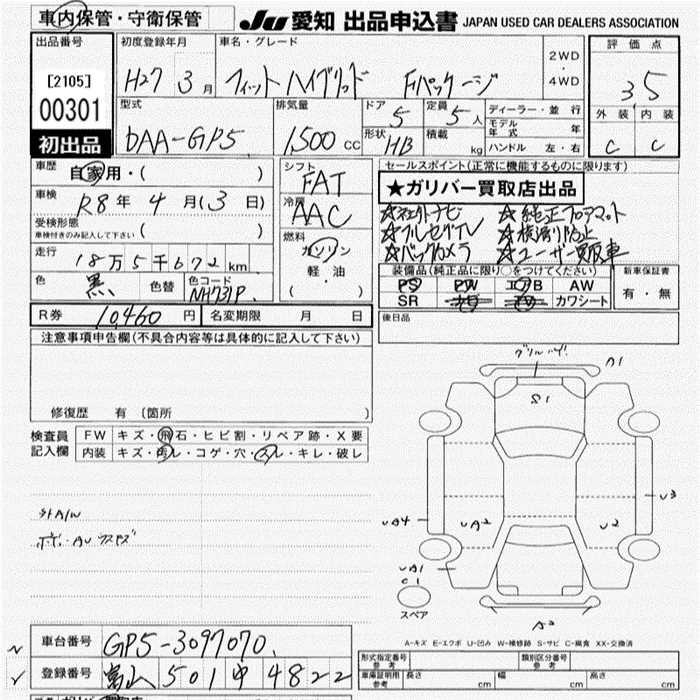 車内保管・守衛保管
JU 愛知 出品申込書 JAPAN USED CAR DEALERS ASSOCIATION
出品番号
[2105]
00301
初出品
初度登録年月
H27 3 月
車名・グレード
フィット ハイブリッド Fパッケージ
2WD
4WD
評価点
3 5
外装 内装
C C
型式
DAA-GP5
排気量
1,500 cc
ドア 5
形状 HB
定員 5 人
積載 kg
ディーラー・並行
モデル年式 年
ハンドル 左・右
車歴
自家用・( )
車検
R8 年 4 月 ( 3 日)
受検形態
車検付きのみ記入して下さい ( )
走行
18 万 5 千 672 km
色 黒 色替 色コード NH731P
シフト
FAT
冷房
AAC
燃料
ガソリン
軽油
( )
セールスポイント(正常に機能するものに限ります)
★ガリバー買取店出品
☆社外ナビ ☆純正フロアマット
☆フルセグTV ☆横滑り防止
☆バックカメラ ☆ユーザー買取車
装備品(純正品に限り○をつけてください)
PS PW エアB AW
SR カワシート
新車保証書
有・無
R券 10,460 円 名変期限 月 日
後日品
注意事項申告欄(不具合内容等は具体的に記入して下さい)
修復歴 有 〔箇所 〕
検査員
記入欄
FW キズ・飛石・ヒビ割・リペア跡・X要
内装 キズ・汚レ・コゲ・穴・スレ・キレ・破レ
外A/W
A1
S1
U3
UA4
UA2
U2
UA1
C1
スペア
A2
A-キズ E-エクボ U-凹み W-補修跡 S-サビ C-腐食 XX-交換済
車台番号 GP5-3097070
登録番号 富山 501 4822
形式指定番号
参考
類別区分番号
参考
車庫証明用
参考
長さ cm 幅 cm 高さ cm